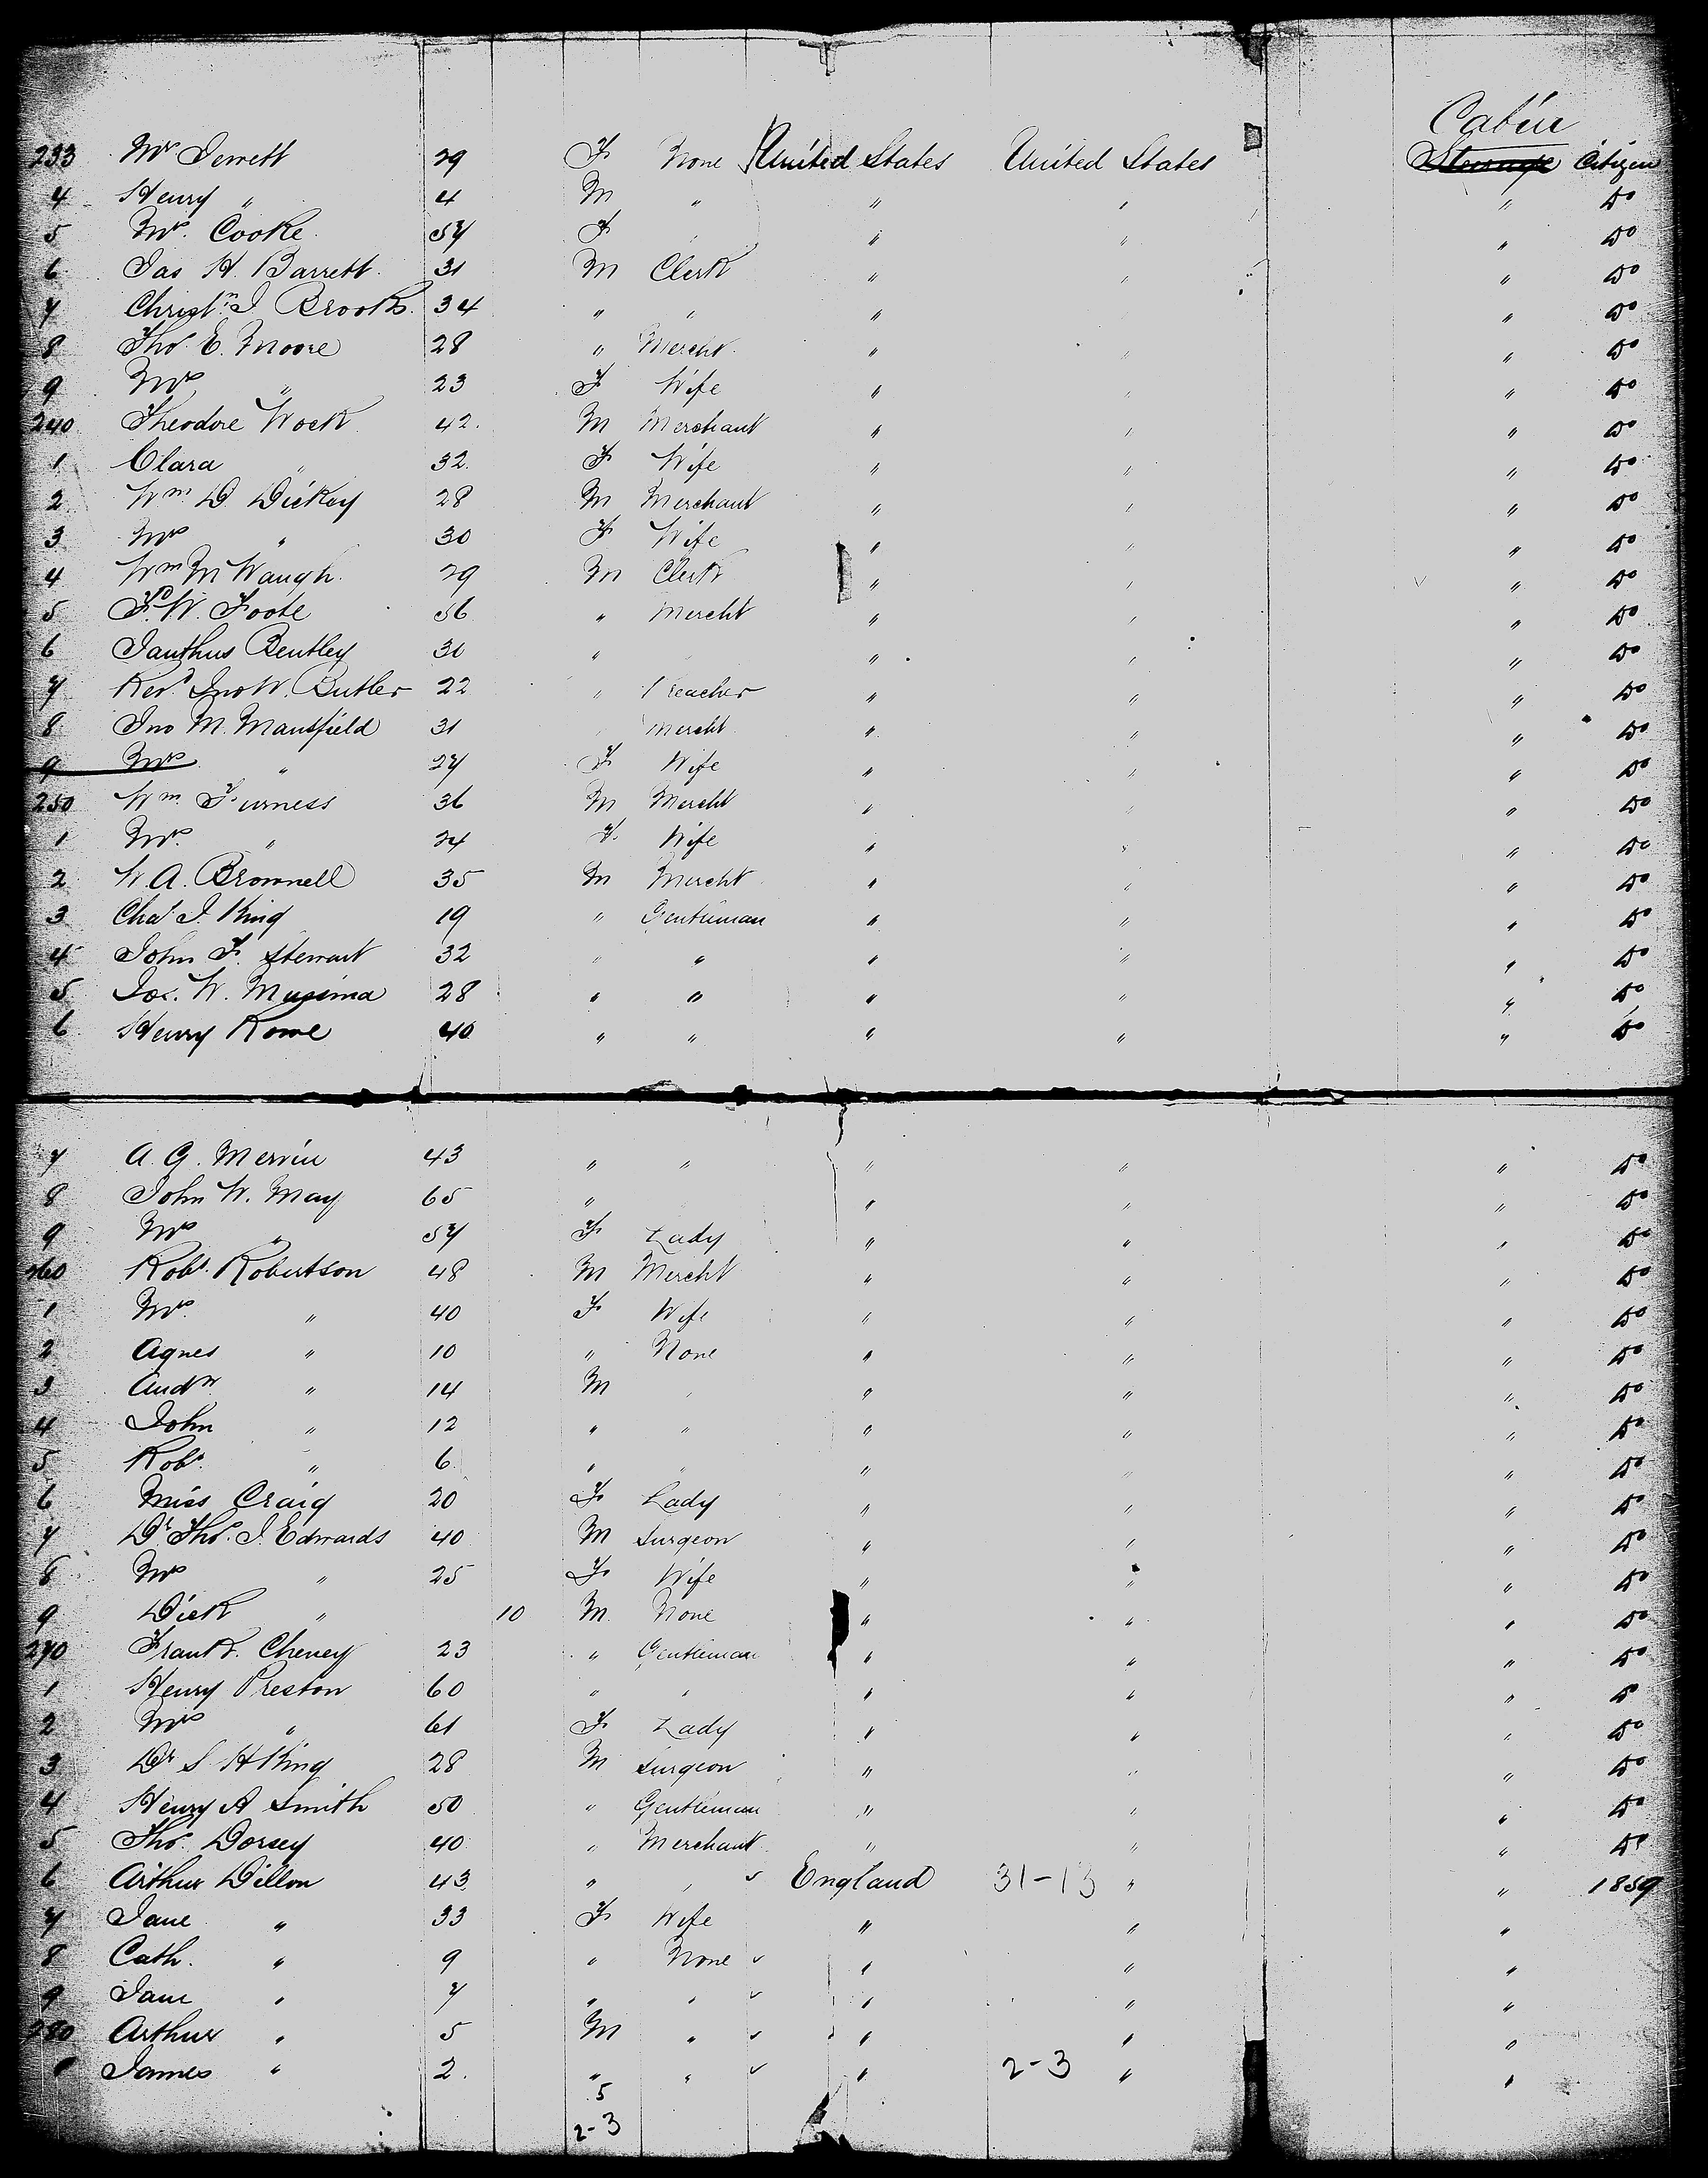 Cabin
233 Mrs Jerrett 29 F None United States United States Steerage Citizen
4 Henry " 4 M " " " " Do
5 Mrs. Cooke 57 F " " " Do
6 Jas H. Barrett 31 M Clerk " " " Do
7 Christn. J Brooks. 34 " " " " Do
8 Thos E. Moore 28 " Mercht. " " " Do
9 Mrs " 23 F Wife " " " Do
240 Theodore Wock 42. M Merchant " " " Do
1 Clara " 32. F Wife " " " Do
2 Wm D. Dickay 28 M Merchant " " " Do
3 Mrs " 30 F Wife " " " Do
4 Wm M Waugh. 29 M Clerk " " " Do
5 F. W. Foote 56 " Mercht " " " Do
6 Ianthus Bentley 31 " " " " Do
7 Revd. Jno W. Butler 22 " Preacher " " " Do
8 Jno M. Mansfield 31 " Mercht " " " Do
9 Mrs " 27 F Wife " " " Do
250 Wm. Furness 36 M Mercht " " " Do
1 Mrs. " 24 F. Wife " " " Do
2 W. A. Brownell 35 M Mercht. " " " Do
3 Chas J. King 19 " Gentleman " " " Do
4 John F. Stewart 32 " " " " " Do
5 Jos. W. 28 " " " " " Do
6 Henry Rowe 40 " " " " " Do
7 A. G. Mervin 43 " " " " " Do
8 John W. May 65 " " " " Do
9 Mrs " 57 F Lady " " " Do
260 Robt. Robertson 48 M Mercht " " " Do
1 Mrs. " 40 F Wife " " " Do
2 Agnes " 10 " None " " " Do
3 Andw " 14 M " " " " Do
4 John " 12 " " " " " Do
5 Robt. " 6 " " " " " Do
6 Miss Craig 20 F Lady " " " Do
7 Dr. Thos. J. Edwards 40 M Surgeon " " " Do
8 Mrs " 25 F Wife " " " Do
9 Dick " 10 M None " " " Do
270 Frank. Cheney 23 " Gentleman " " " Do
1 Henry Preston 60 " " " " " Do
2 Mrs " 61 F Lady " " " Do
3 Dr S H King 28 M Surgeon " " " Do
4 Henry A Smith 50 " Gentleman " " " Do
5 Thos. Dorsey 40 " Merchant " " " Do
6 Arthur Dillon 43 " " England 31-13 " " 1859
7 Jane " 33 F Wife " " "
8 Cath. " 9 " None " " "
9 Jane " 7 " " " " "
280 Arthur " 5 M " " " "
1 James " 2. " " " 2-3 " "
5
2-3